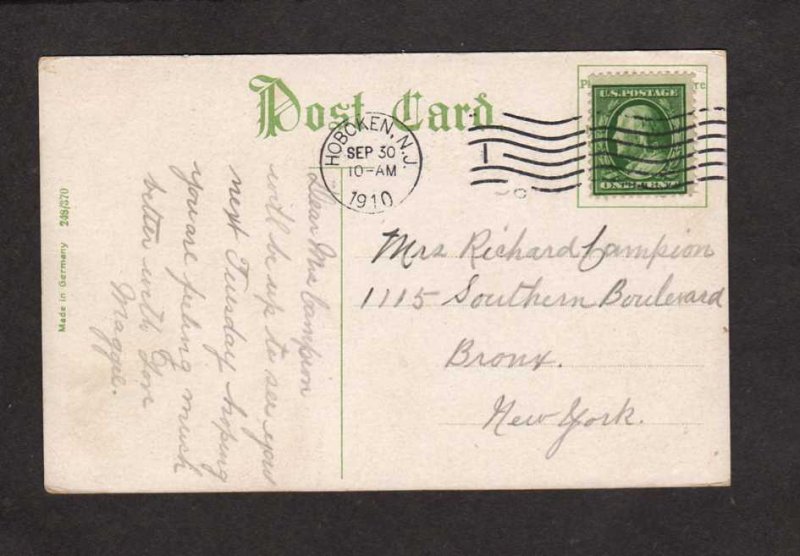 Post Card
HOBOKEN, N.J.
SEP 30
10-AM
1910
U.S. POSTAGE
ONE CENT
Mrs Richard Campion
1115 Southern Boulevard
Bronx.
New York.
Dear Mrs Campion
will be up to see you
next Tuesday hoping
you are feeling much
better with love
Maggie.
Made in Germany 248/370